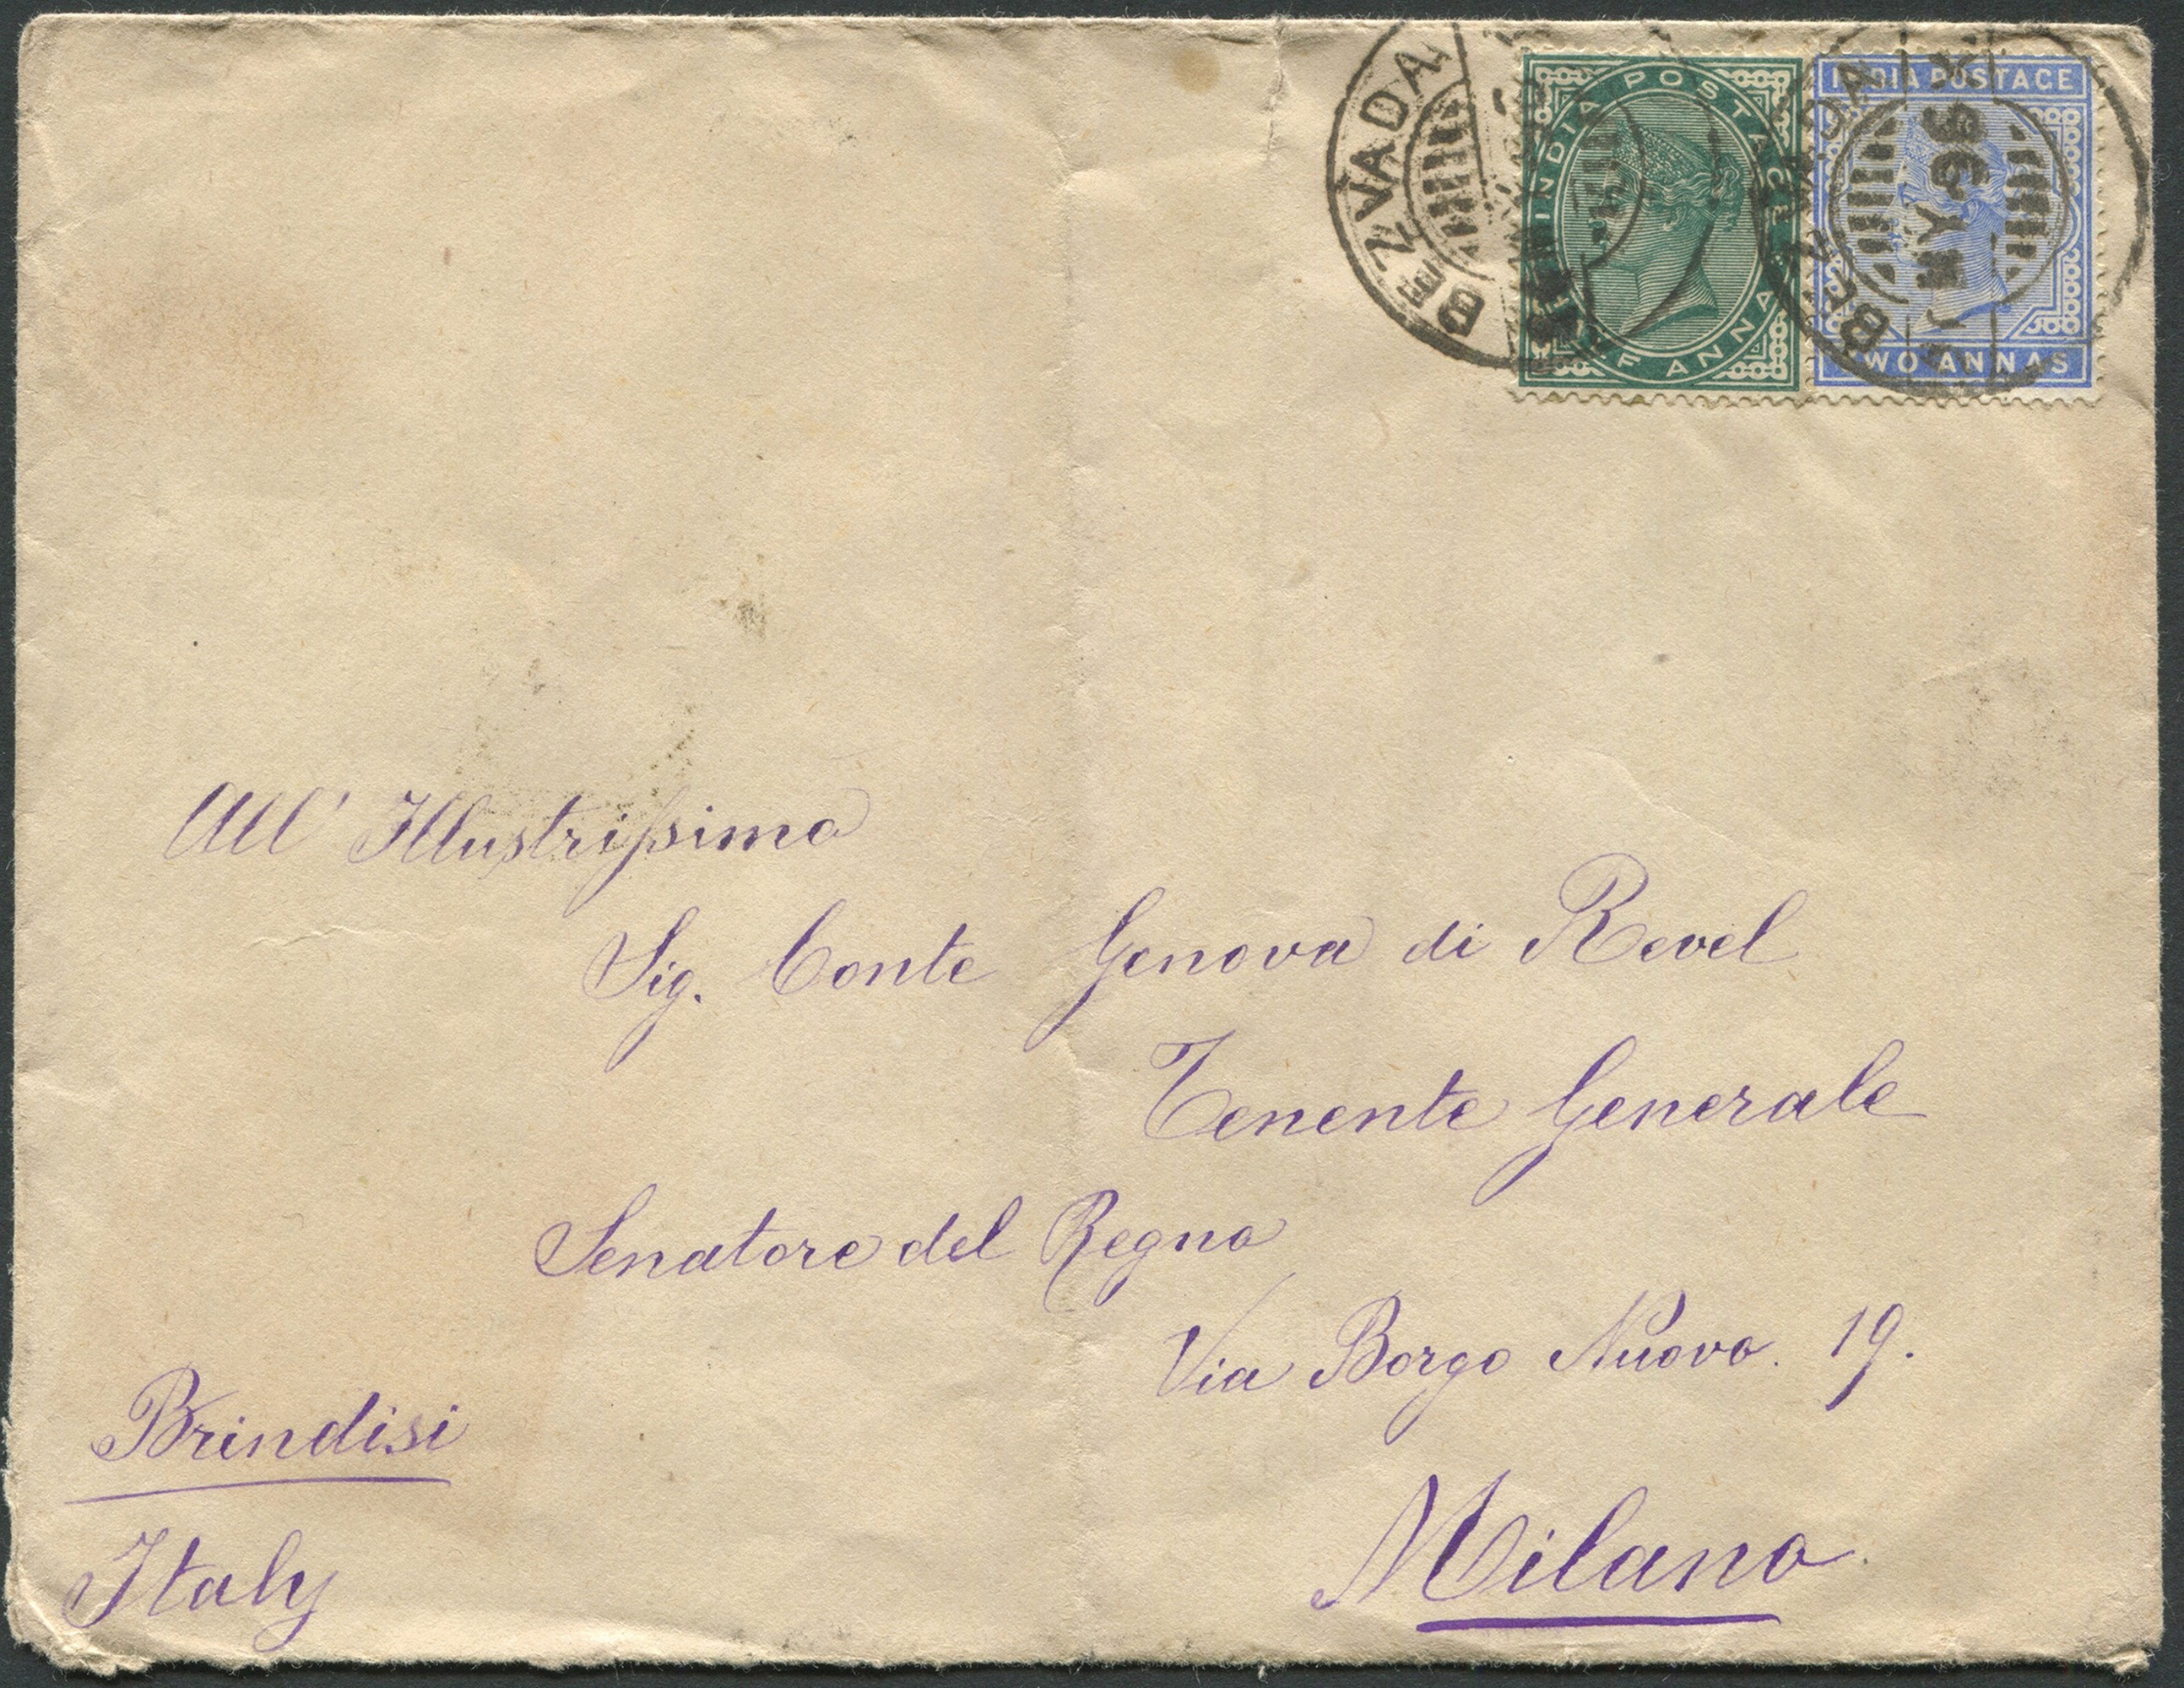 BEZVADA
INDIA POSTAGE
HALF ANNA
INDIA POSTAGE
TWO ANNAS
BEZVADA
MY
96
All' Illustrissimo
Sig. Conte Genova di Revel
Tenente Generale
Senatore del Regno
Via Borgo Nuovo. 19.
Milano
Brindisi
Italy